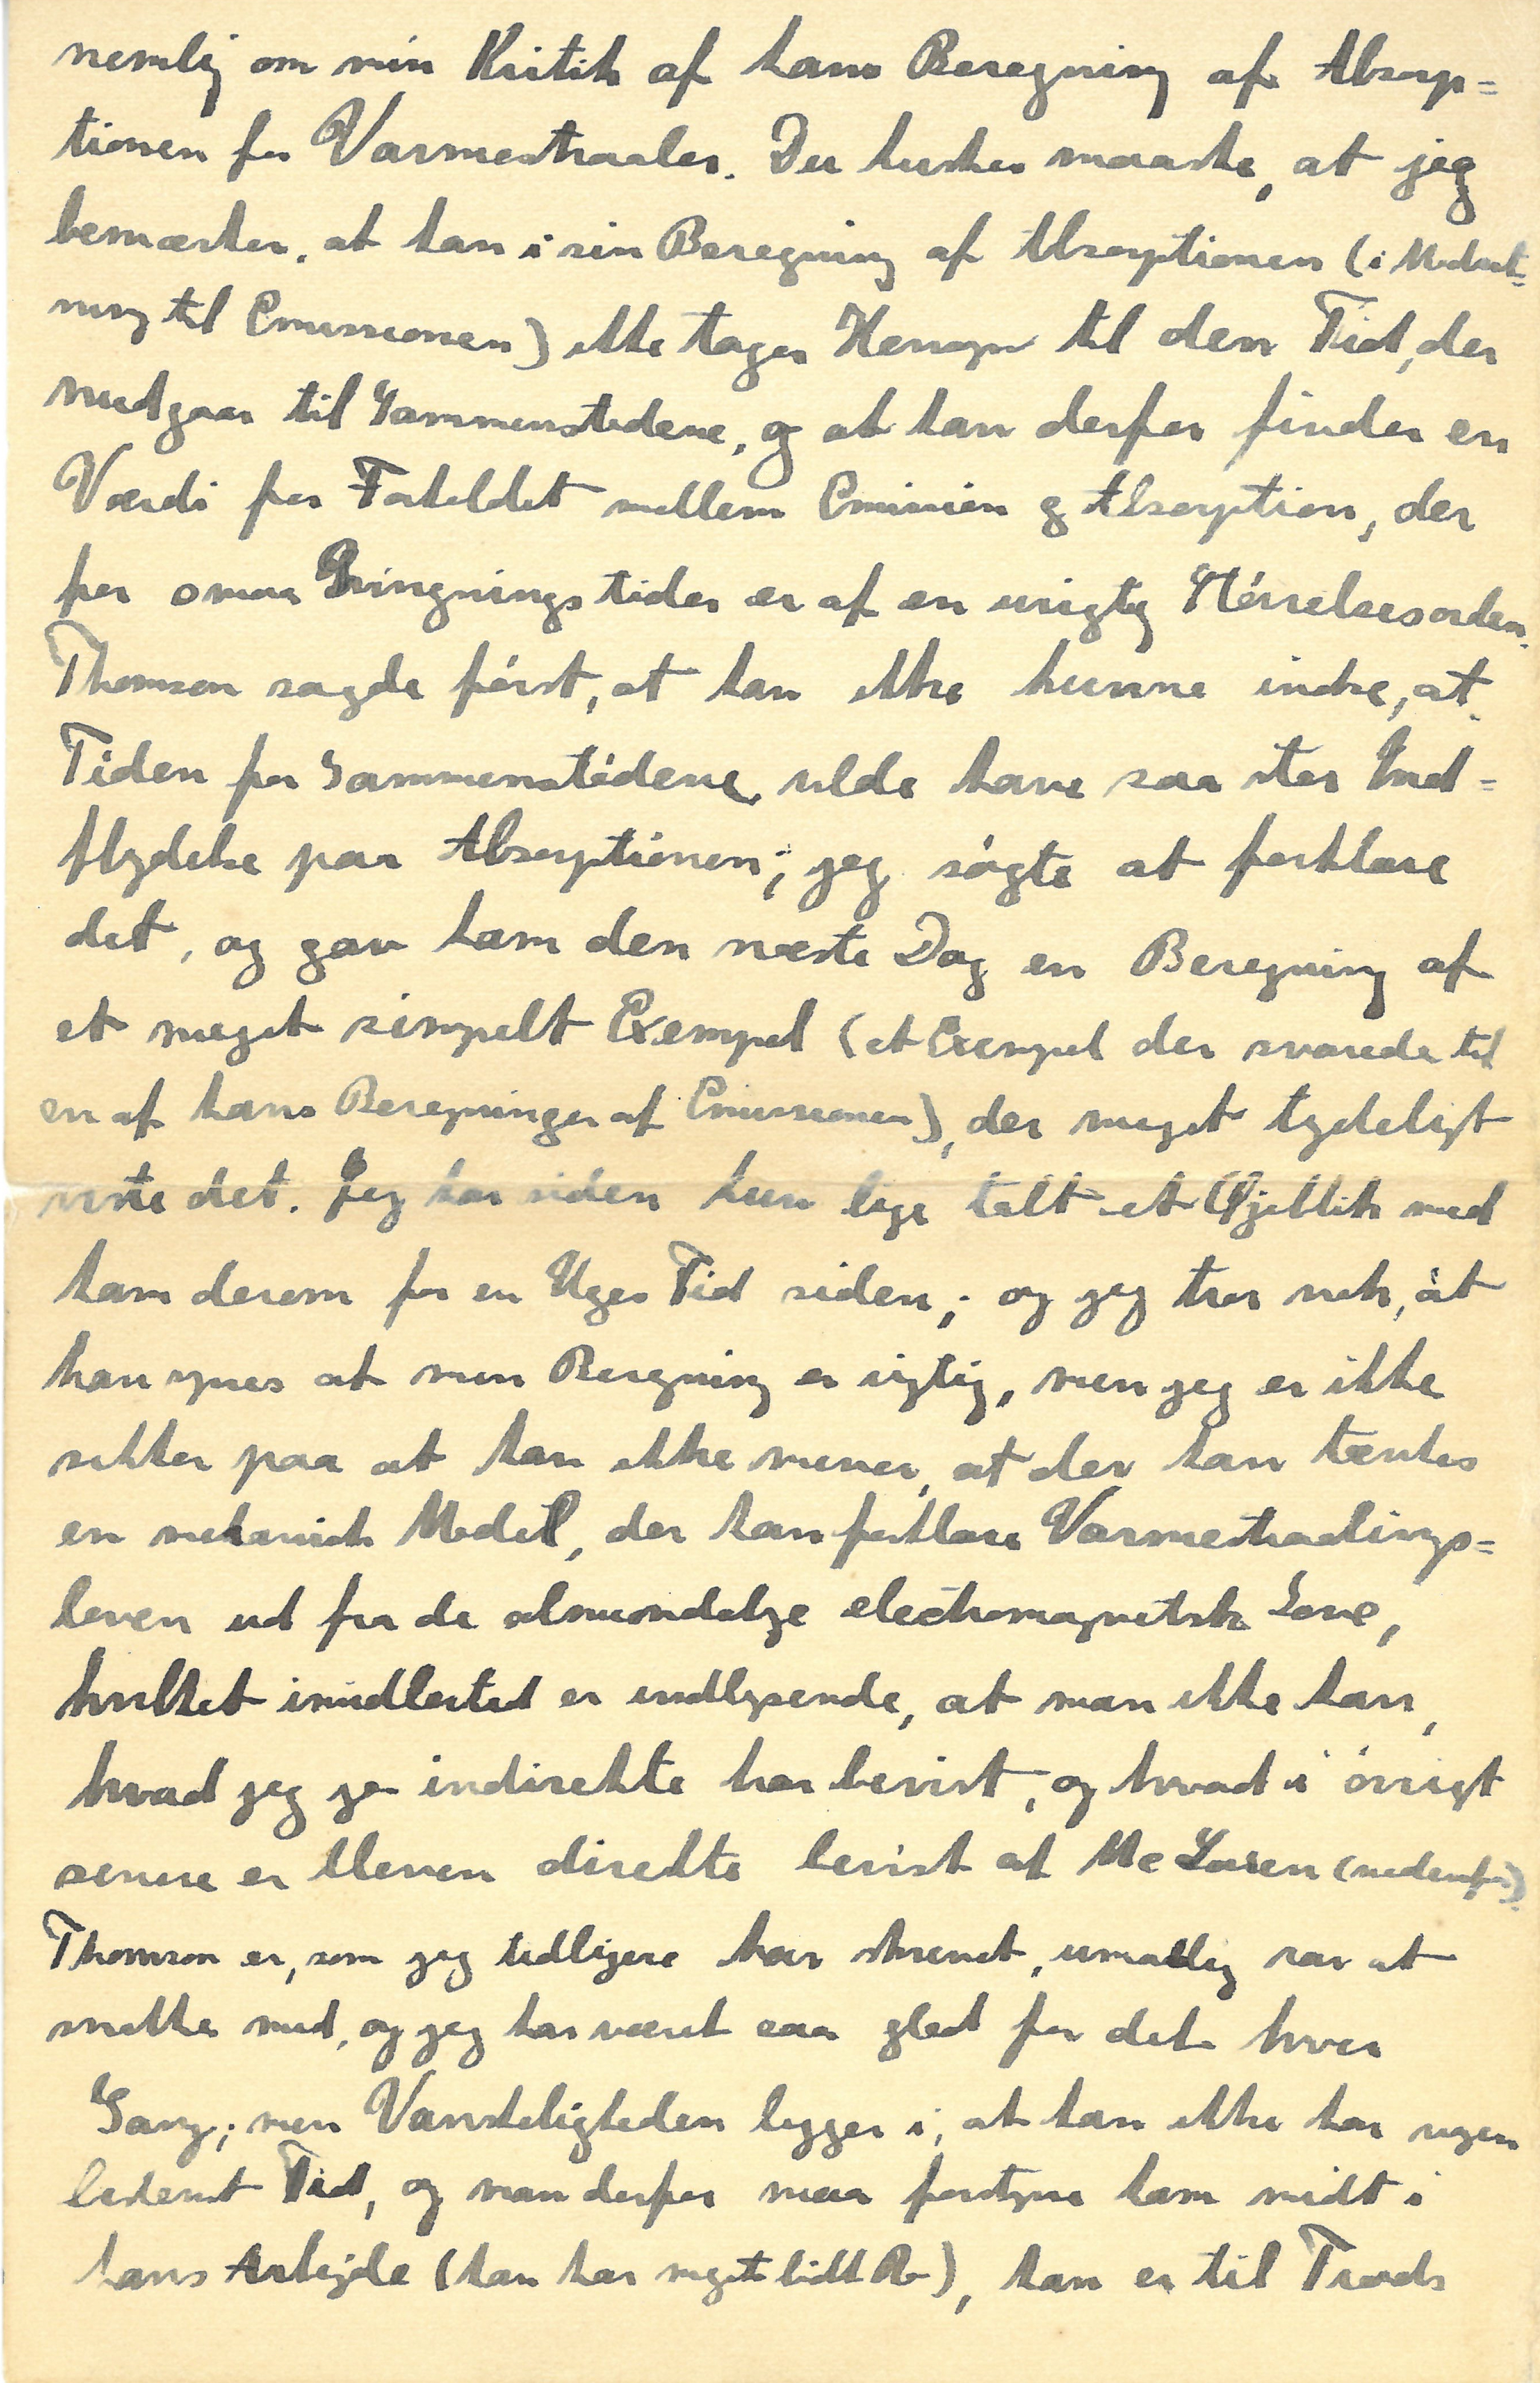 nemlig om min Kritik af hans Beregning af Absorp=
tionen for Varmestraaler. Du husker maaske, at jeg
bemærker, at han i sin Beregning af Absorptionen (i Modsæt=
ning til Emissionen) ikke tager Hensyn til den Tid, der
medgaar til Sammenstødene, og at han derfor finder en
Værdi for Forholdet mellem Emission og Absorption, der
for smaa Svingningstider er af en urigtig Størrelsesorden.
Thomson sagde først, at han ikke kunne indse, at
Tiden for Sammenstødene vilde have saa stor Ind=
flydelse paa Absorptionen; jeg søgte at forklare
det, og gav ham den næste Dag en Beregning af
et meget simpelt Exempel (et Exempel der svarede til
en af hans Beregninger af Emissionen), der meget tydeligt
viste det. Jeg har siden kun lige talt et Øjeblik med
ham derom for en Uges Tid siden; og jeg tror nok, at
han synes at min Beregning er rigtig, men jeg er ikke
sikker paa at han ikke mener, at der kan tænkes
en mekanisk Model, der kan forklare Varmestraalings=
loven ud fra de almindelige electromagnetiske Love,
hvilket imidlertid er indlysende, at man ikke kan,
hvad jeg jo indirekte har bevist, og hvad i øvrigt
senere er bleven direkte bevist af Mc Laren (nedenfor).
Thomson er, som jeg tidligere har skrevet, umaadelig rar at
snakke med, og jeg har været saa glad for det hver
Gang; men Vanskeligheden ligger i, at han ikke har nogen
bestemt Tid, og man derfor maa forstyrre ham midt i
hans Arbejde (han har meget lidt Ro), han er til Trods